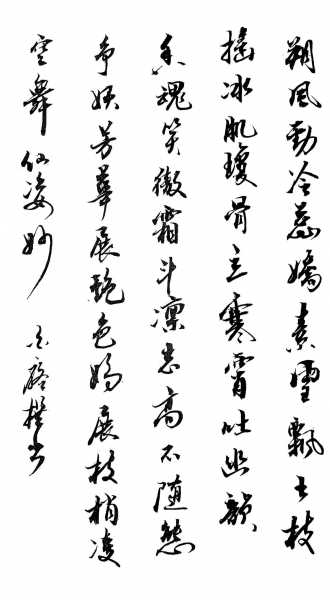 朔風勁冷蕊嬌素雪飄玉枝
搖冰肌瓊骨立寒霄吐幽韻
香魂笑傲霜斗凜志高不隨態
爭妖芳華展艷色嬌展枝梢凌
雲舞仙姿妙 書